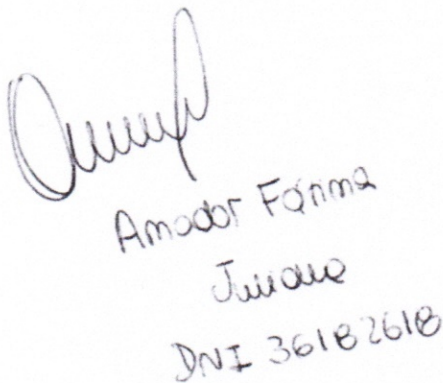 Amador Fátima
Juliana
DNI 36182618